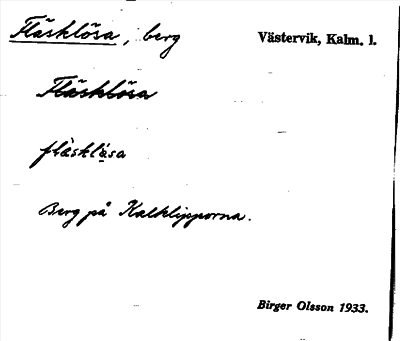 Fläsklösa, berg
Västervik, Kalm. l.
Fläsklösa
fläsklåsa
Berg på Kalklipporna.
Birger Olsson 1933.